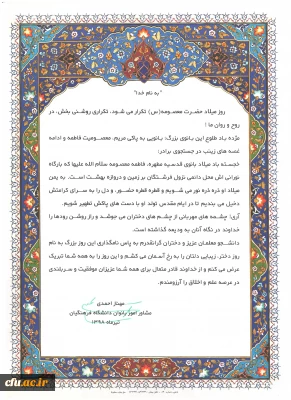 "به نام خدا"
روز میلاد حضرت معصومه(س) تکرار می شود. تکراری روشنی بخش، در
روح و روان ما!
مژده باد طلوع این بانوی بزرگ؛ بانویی به پاکی مریم، معصومیت فاطمه و ادامه
غصه های زینب در جستجوی برادر!
خجسته باد میلاد بانوی قدسیه مطهره، فاطمه معصومه سلام الله علیها که بارگاه
نورانی اش محل دائمی نزول فرشتگان بر زمین و دروازه بهشت است. به یمن
میلاد او ذره ذره نور می شویم و قطره قطره حضور، و دل را به سرای کرامتش
دخیل می بندیم تا در ایام مقدس تولد او با دست های پاکش تطهیر شویم.
آری! چشمه های مهربانی از چشم های دختران می جوشد و راز روشن رودها را
خداوند در نگاه آنان به ودیعه گذاشته است.
دانشجو معلمان عزیز و دختران گرانقدرم به پاس نامگذاری این روز بزرگ به نام
روز دختر، زیبایی دلتان را به رخ آسمان می کشم و این روز را به همه شما تبریک
عرض می کنم و از خداوند قادر متعال برای همه شما عزیزان موفقیت و سربلندی
در عرصه علم و اخلاق را آرزومندم.
مهناز احمدی
مشاور امور بانوان دانشگاه فرهنگیان
تیرماه ۱۳۹۸
cfu.ac.ir